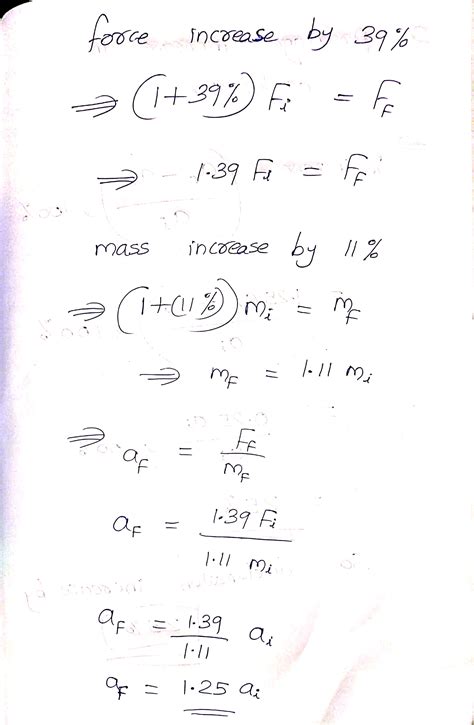 force increase by 39%
⇒ (1+39%) Fi = FF
⇒ 1.39 Fi = FF
mass increase by 11%
⇒ (1+(11%)) mi = mF
⇒ mF = 1.11 mi
⇒ aF = FF / mF
aF = 1.39 Fi / 1.11 mi
aF = 1.39 / 1.11 ai
aF = 1.25 ai